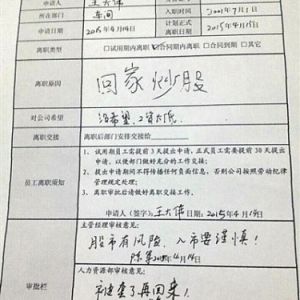 申请人 王大伟 入职时间 2001年7月1日
所在部门 车间 计划正式离职日期 2015年4月15日
申请日期 2015年4月14日
离职类型 □试用期内离职 ☑合同期内离职 □合同到期 □其它
离职原因 回家炒股
对公司希望 没希望,工资太低
离职交接 离职后部门安排交接给
员工离职须知
1、试用期员工需提前3天提出申请,正式员工需要提前30天提出
申请,以使部门做好充分的工作交接;
2、提出申请期间不得传播任何负面信息,否则公司按照劳动纪律
管理规定处理;
3、离职审批后请做好离职交接工作。
申请人(签字):王大伟 日期 2015年4月14日
审批栏
主管经理审核意见:
股市有风险,入市要谨慎!
2015年4月14日
人力资源部审核意见:
被套了再回来!